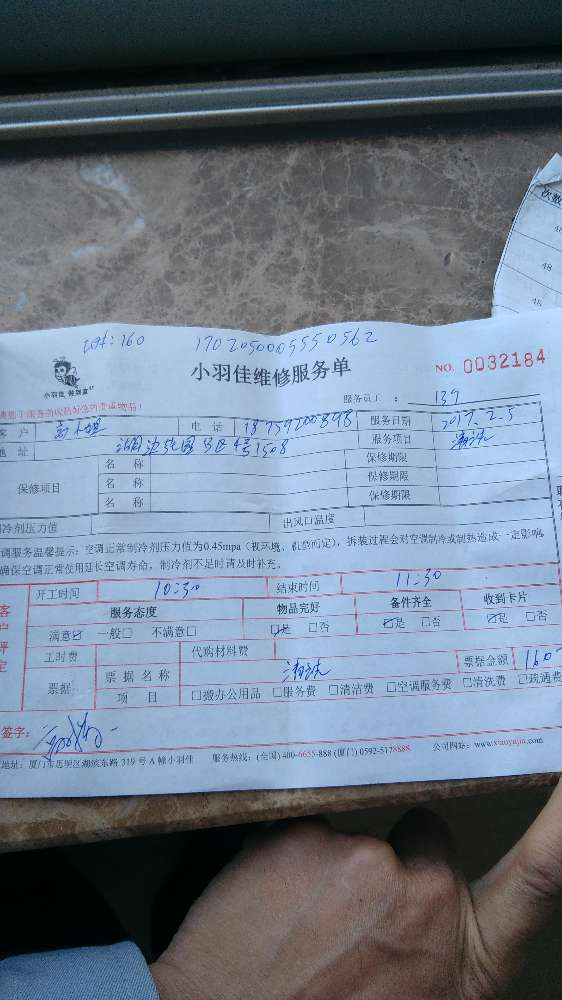 1702050005550562
小羽佳维修服务单
NO. 0032184
小羽佳 做到家
服务员工 : 139
客 户 电 话 18759200898 服务日期 2017.2.5
地 址 服务项目
保修项目 名 称 保修期限
名 称 保修期限
名 称 保修期限
制冷剂压力值 出风口温度
调服务温馨提示: 空调正常制冷剂压力值为0.45mpa (视环境、机型而定), 拆装过程会对空调制冷或制热造成一定影响
确保空调正常使用延长空调寿命, 制冷剂不足时请及时补充。
开工时间 10:30 结束时间 11:30
客户评定
服务态度 物品完好 备件齐全 收到卡片
满意☑ 一般□ 不满意□ ☑是 □否 ☑是 □否 ☑是 □否
工时费 代购材料费
票据 票 据 名 称 票据金额 160
项 目 □搬办公用品 □服务费 □清洁费 □空调服务费 □清洗费 ☑疏通费
签字:
地址: 厦门市思明区湖滨东路 319 号 A 幢小羽佳 服务热线: (全国) 400-6655-888 (厦门) 0592-5178888 公司网站: www.xiaoyujia.com
次数
48